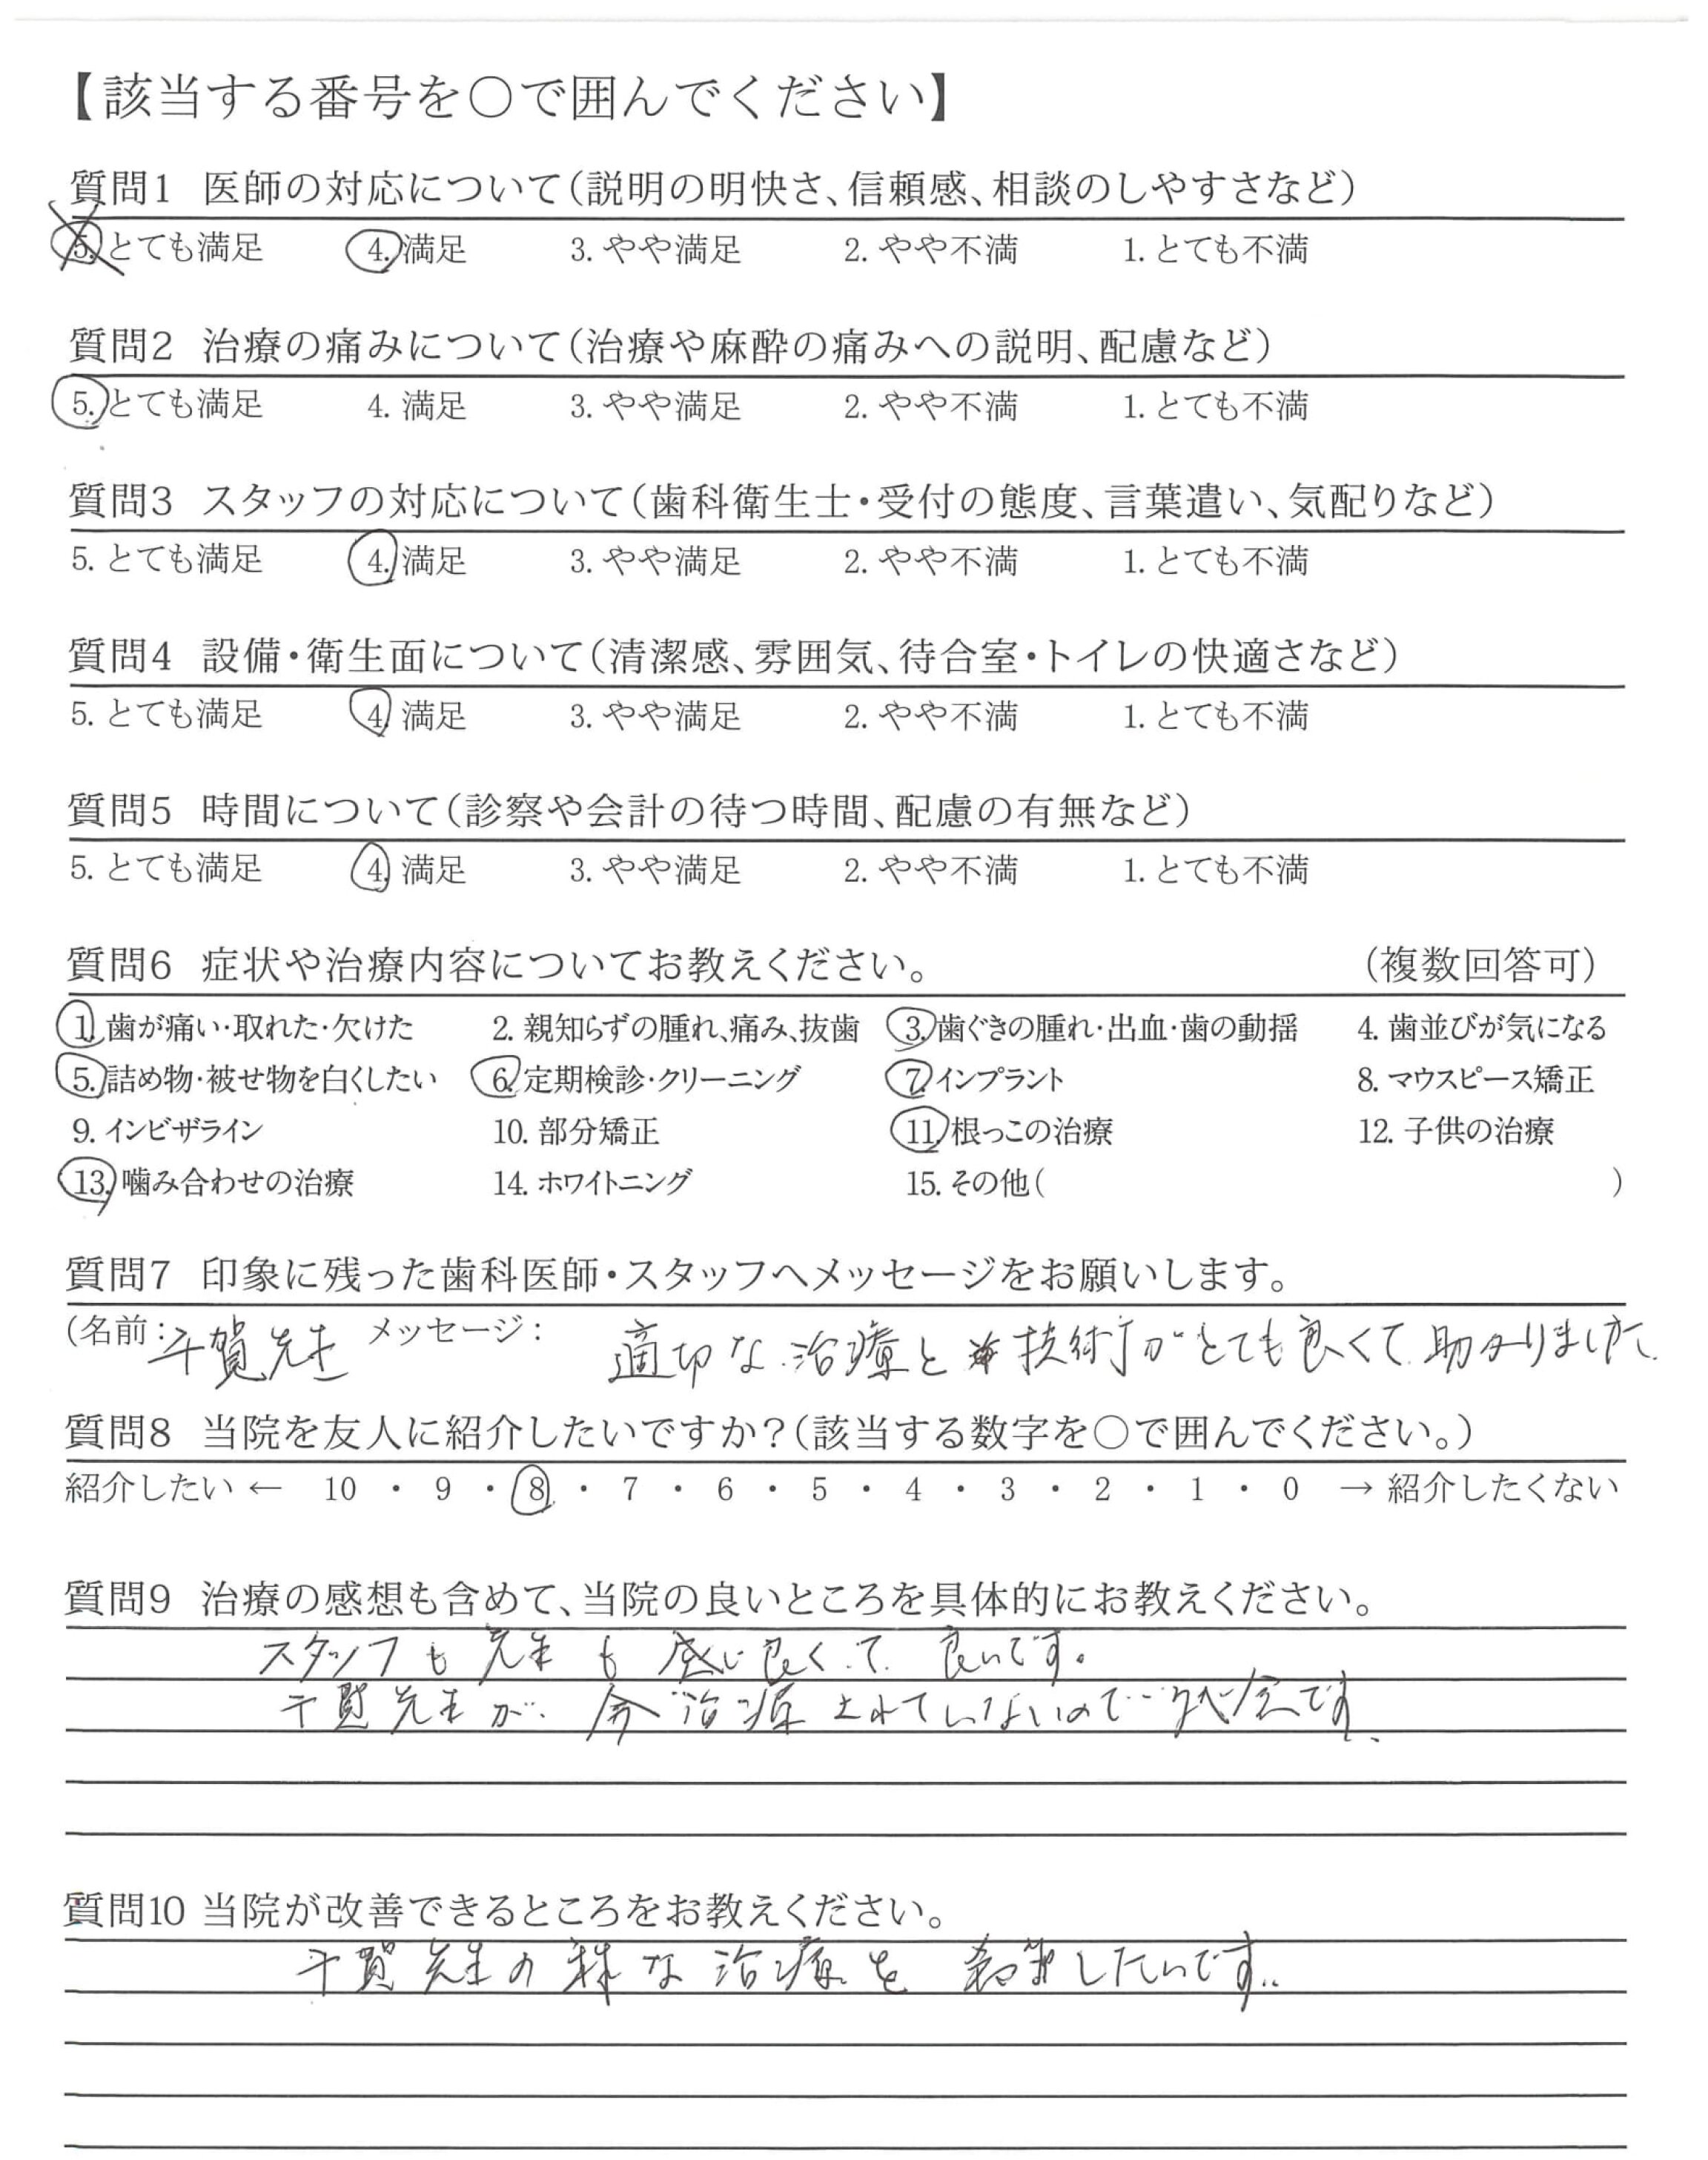 【該当する番号を○で囲んでください】
質問1 医師の対応について(説明の明快さ、信頼感、相談のしやすさなど)
5. とても満足 4. 満足 3. やや満足 2. やや不満 1. とても不満
質問2 治療の痛みについて(治療や麻酔の痛みへの説明、配慮など)
5. とても満足 4. 満足 3. やや満足 2. やや不満 1. とても不満
質問3 スタッフの対応について(歯科衛生士・受付の態度、言葉遣い、気配りなど)
5. とても満足 4. 満足 3. やや満足 2. やや不満 1. とても不満
質問4 設備・衛生面について(清潔感、雰囲気、待合室・トイレの快適さなど)
5. とても満足 4. 満足 3. やや満足 2. やや不満 1. とても不満
質問5 時間について(診察や会計の待つ時間、配慮の有無など)
5. とても満足 4. 満足 3. やや満足 2. やや不満 1. とても不満
質問6 症状や治療内容についてお教えください。 (複数回答可)
1. 歯が痛い・取れた・欠けた 2. 親知らずの腫れ、痛み、抜歯 3. 歯ぐきの腫れ・出血・歯の動揺 4. 歯並びが気になる
5. 詰め物・被せ物を白くしたい 6. 定期検診・クリーニング 7. インプラント 8. マウスピース矯正
9. インビザライン 10. 部分矯正 11. 根っこの治療 12. 子供の治療
13. 噛み合わせの治療 14. ホワイトニング 15. その他( )
質問7 印象に残った歯科医師・スタッフへメッセージをお願いします。
(名前: 千賀先生 メッセージ: 適切な治療と技術がとても良くて助かりました
質問8 当院を友人に紹介したいですか?(該当する数字を○で囲んでください。)
紹介したい ← 10 ・ 9 ・ 8 ・ 7 ・ 6 ・ 5 ・ 4 ・ 3 ・ 2 ・ 1 ・ 0 → 紹介したくない
質問9 治療の感想も含めて、当院の良いところを具体的にお教えください。
スタッフも先生も感じ良くて良いです。
千賀先生が今治療されていないので残念です
質問10 当院が改善できるところをお教えください。
千賀先生の様な治療を希望したいです。